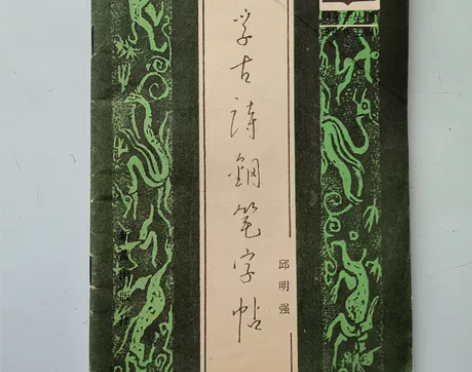 学古詩鋼笔字帖
邱明强